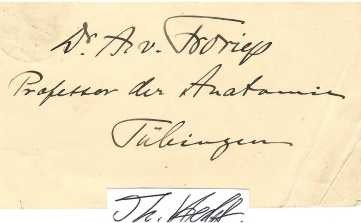 Dr. A. v. Froriep
Professor der Anatomie
Tübingen
Th.